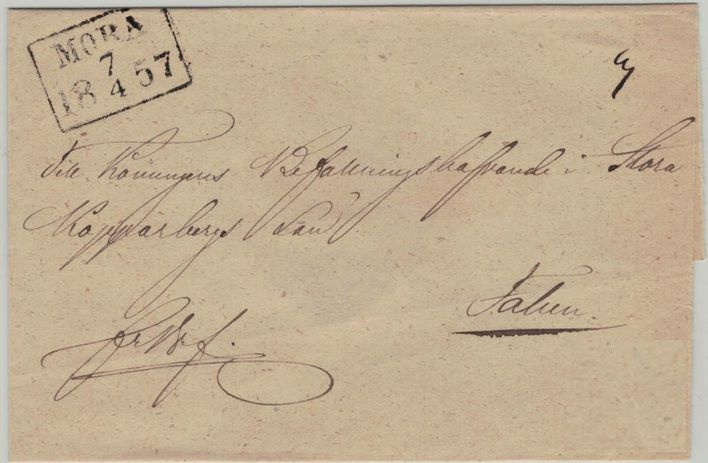 MORA
7
18 4 57
Till Konungens Befallningshafvande i Stora
Kopparbergs Län
Falun.